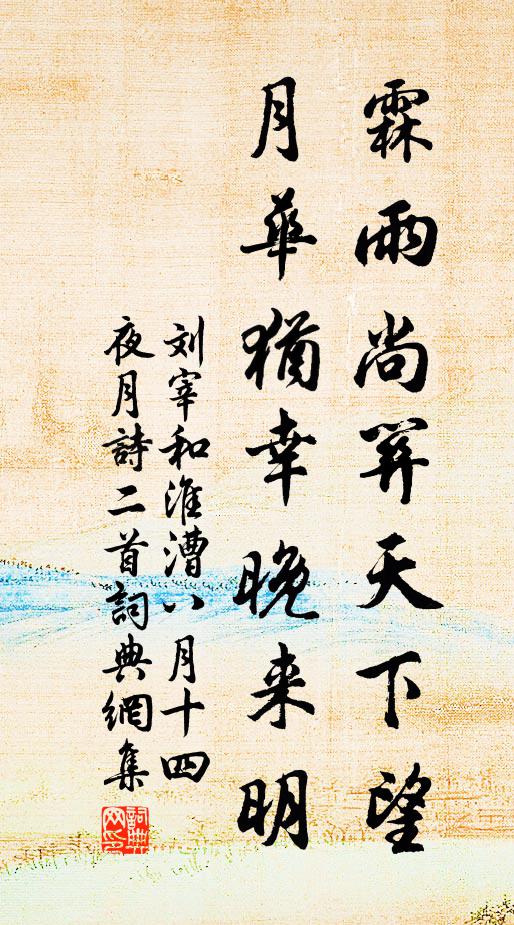 霖雨尚關天下望
月華猶幸晚来明
刘宰和淮漕八月十四
夜月詩二首詞典網集
詞典
网印